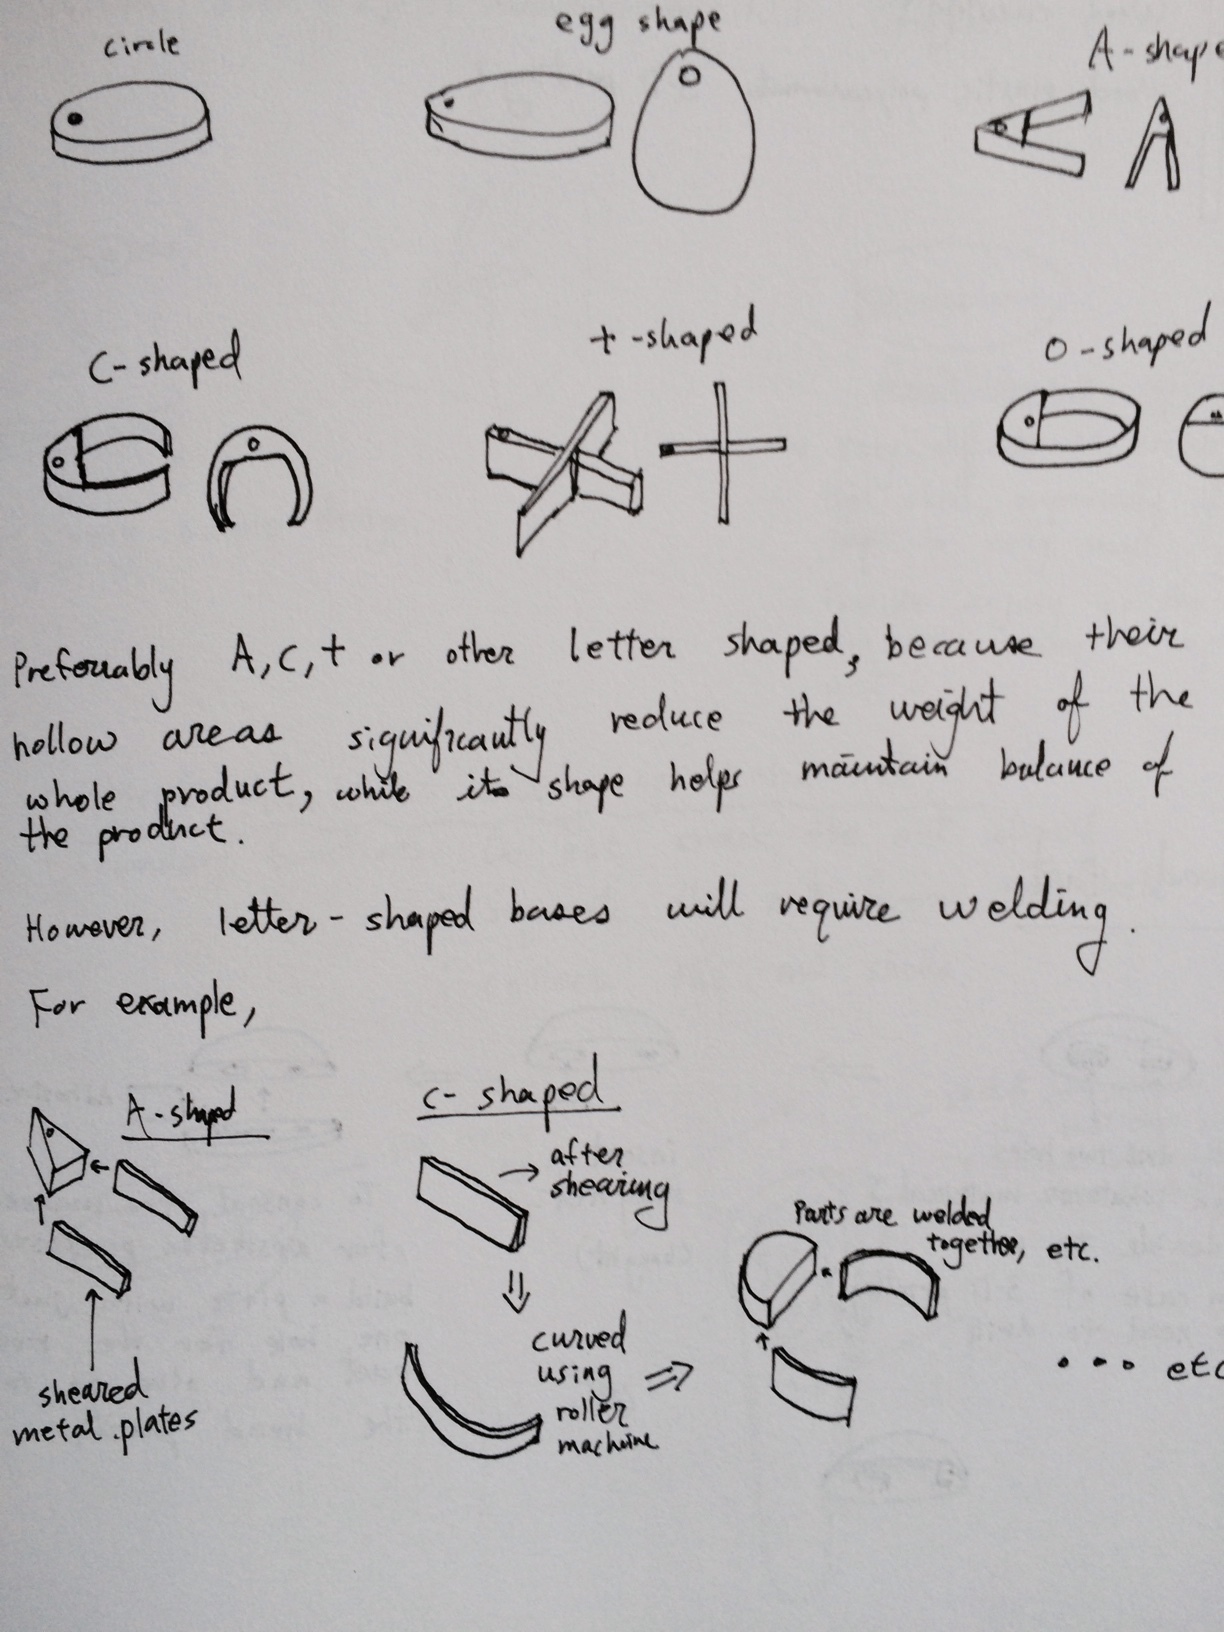 circle
egg shape
A-shape
C-shaped
t-shaped
O-shaped
Preferrably A, C, t or other letter shaped, because their
hollow areas significantly reduce the weight of the
whole product, while its shape helps maintain balance of
the product.
However, letter-shaped bases will require welding.
For example,
A-shaped
sheared
metal plates
C-shaped
after
shearing
curved
using
roller
machine
Parts are welded
together, etc.
... etc